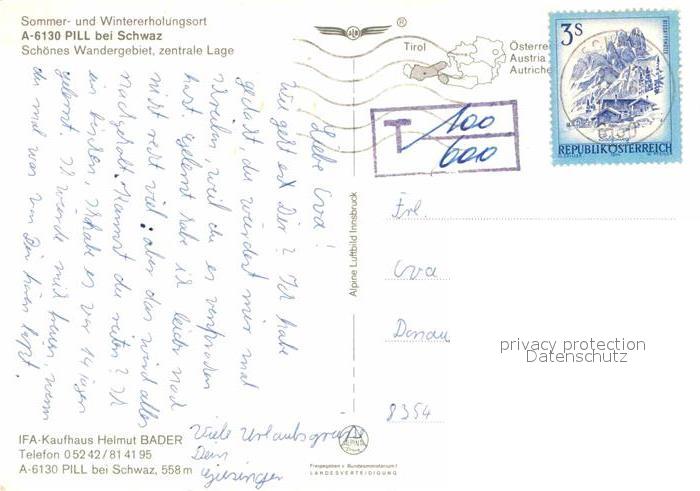 Sommer- und Wintererholungsort
A-6130 PILL bei Schwaz
Schönes Wandergebiet, zentrale Lage
Liebe Eva!
Wie geht es Dir? Ich habe
gedacht, du würdest mir mal
schreiben weil du es versprochen
hast. gelernt habe ich leider noch
nicht recht viel, aber das wird alles
nachgeholt. Kannst du reiten? Ich
ein bischen, Ich habe es vor 14 tagen
gelernt. Ich würde mich freuen, wenn
du mal was von Dir hören läßt.
Viele Urlaubsgrüße
Dein
IFA-Kaufhaus Helmut BADER
Telefon 0 52 42 / 81 41 95
A-6130 PILL bei Schwaz, 558 m
Alpine Luftbild Innsbruck
ALPINE
Freigegeben v. Bundesministerium f.
LANDESVERTEIDIGUNG
®
Tirol
Österre
Austria
Autriche
T 100
600
3s
REPUBLIK ÖSTERREICH
Frl.
Eva
Donau
8354
privacy protection
Datenschutz